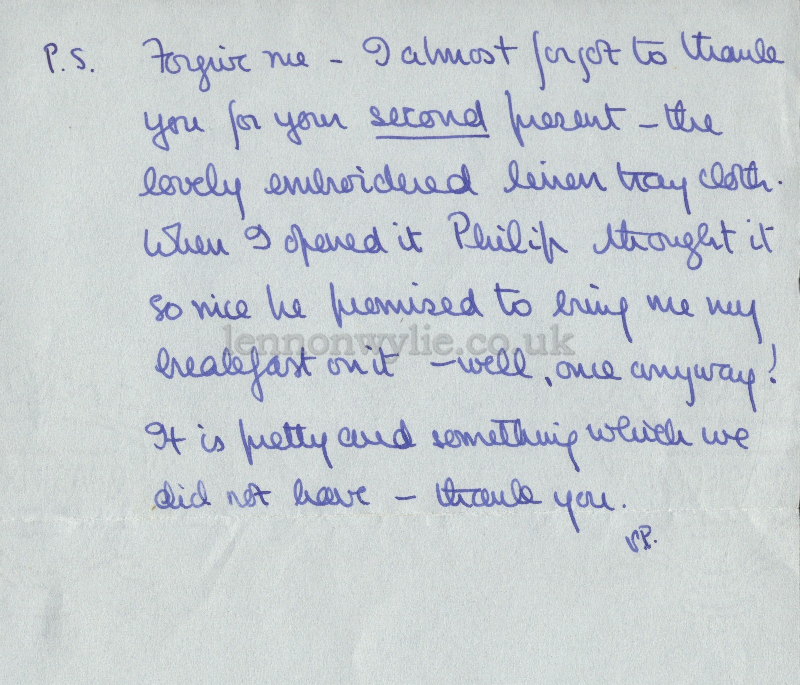 P.S. Forgive me - I almost forgot to thank
you for your second present - the
lovely embroidered linen tray cloth.
When I opened it Philip thought it
so nice he promised to bring me my
lennonwylie.co.uk
breakfast on it - well, once anyway!
It is pretty and something which we
did not have - thank you.
VP.